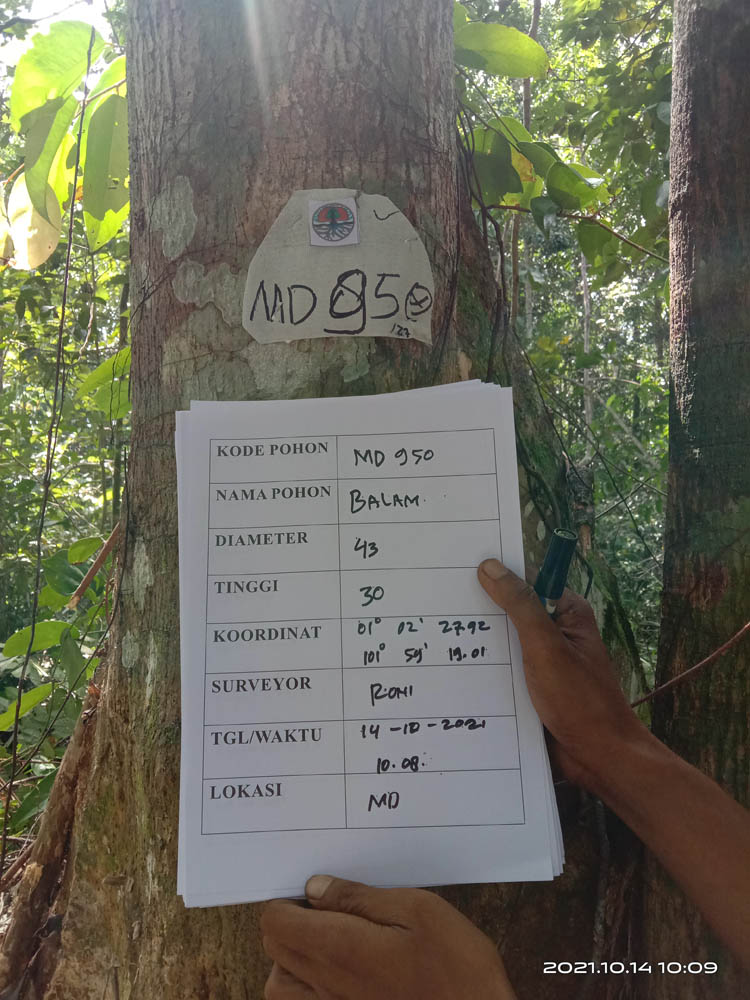 MD 950
127
KODE POHON MD 950
NAMA POHON BALAM.
DIAMETER 43
TINGGI 30
KOORDINAT 01° 02' 27.92
101° 59' 19.01
SURVEYOR RONI
TGL/WAKTU 14-10-2021
10.08.
LOKASI MD
2021.10.14 10:09